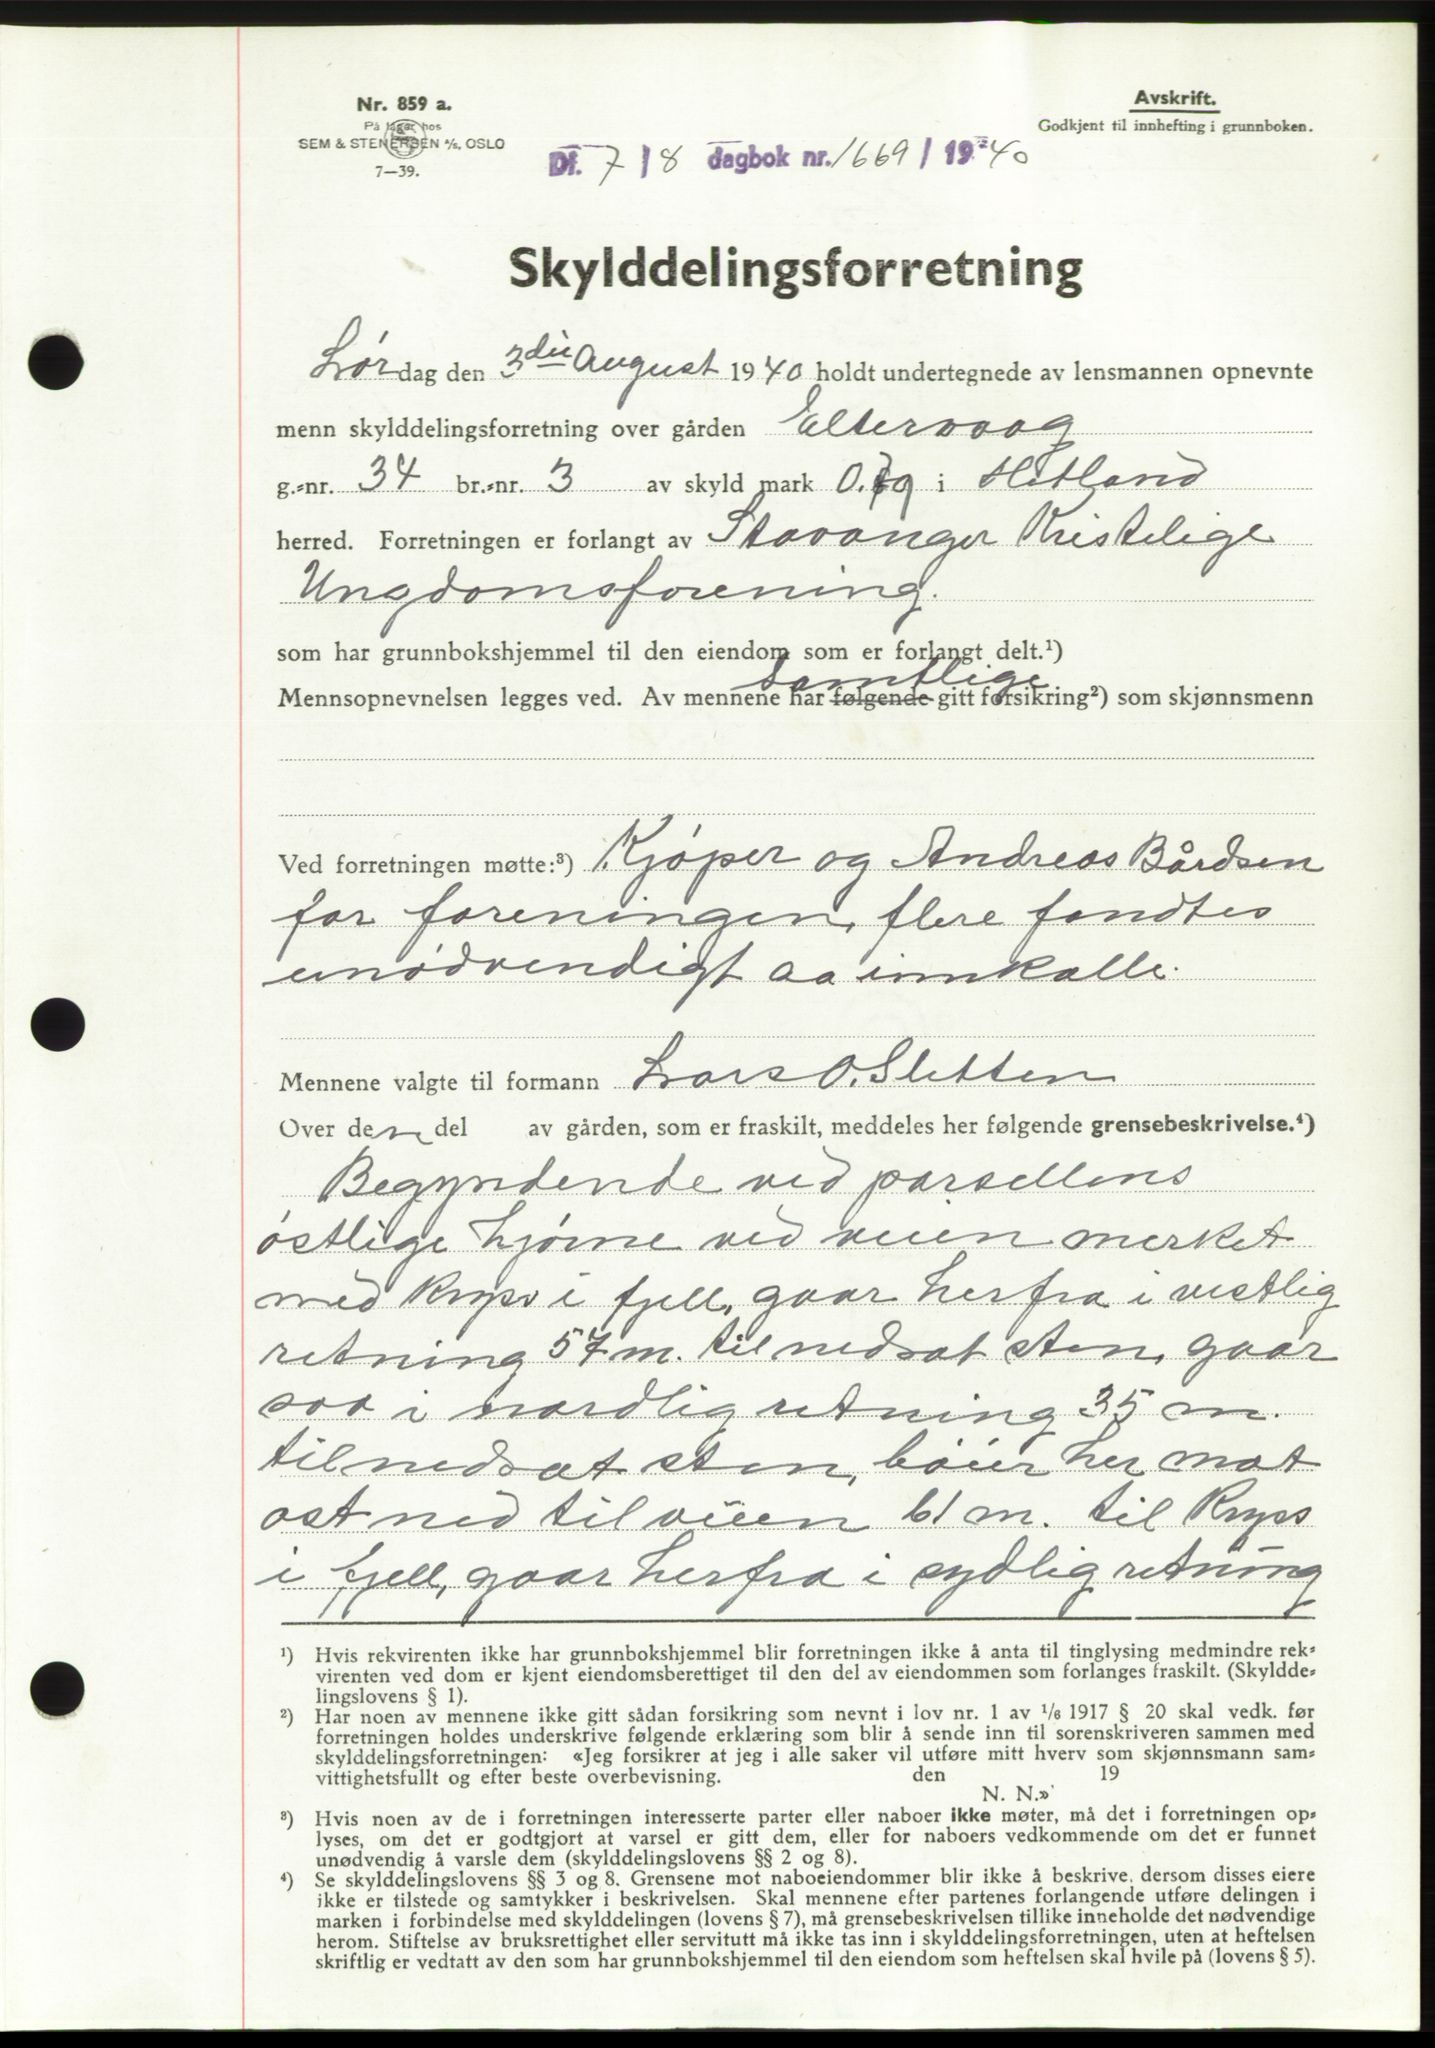 Nr. 859 a.
På lager hos
SEM & STENERSEN A/S, OSLO
7—39.
Avskrift.
Godkjent til innhefting i grunnboken.
Df. 7 / 8 dagbok nr. 1669 / 1940
Skylddelingsforretning
Lørdag den 3die August 1940 holdt undertegnede av lensmannen opnevnte
menn skylddelingsforretning over gården Eltervaag
g.=nr. 34 br.=nr. 3 av skyld mark 0.79 i Hetland
herred. Forretningen er forlangt av Stavanger Kristelige
Ungdomsforening.
som har grunnbokshjemmel til den eiendom som er forlangt delt.¹)
samtlige
Mennsopnevnelsen legges ved. Av mennene har følgende gitt forsikring²) som skjønnsmenn
Ved forretningen møtte:³) Kjøper og Andreas Bårdsen
for foreningen, flere fandtes
unødvendigt aa innkalle.
Mennene valgte til formann Lars O. Sletten
Over den del av gården, som er fraskilt, meddeles her følgende grensebeskrivelse.⁴)
Begyndende ved parsellens
østlige hjørne ved veien merket
med kryss i fjell, gaar herfra i vestlig
retning 57 m. til nedsat sten, gaar
saa i nordlig retning 35 m.
til nedsat sten, bøier her mot
ost ned til veien 61 m. til kryss
i fjell, gaar herfra i sydlig retning
¹) Hvis rekvirenten ikke har grunnbokshjemmel blir forretningen ikke å anta til tinglysing medmindre rek=
virenten ved dom er kjent eiendomsberettiget til den del av eiendommen som forlanges fraskilt. (Skyldde=
lingslovens § 1).
²) Har noen av mennene ikke gitt sådan forsikring som nevnt i lov nr. 1 av 1/6 1917 § 20 skal vedk. før
forretningen holdes underskrive følgende erklæring som blir å sende inn til sorenskriveren sammen med
skylddelingsforretningen: «Jeg forsikrer at jeg i alle saker vil utføre mitt hverv som skjønnsmann sam=
vittighetsfullt og efter beste overbevisning. den 19
N. N.»
³) Hvis noen av de i forretningen interesserte parter eller naboer ikke møter, må det i forretningen op=
lyses, om det er godtgjort at varsel er gitt dem, eller for naboers vedkommende om det er funnet
unødvendig å varsle dem (skylddelingslovens §§ 2 og 8).
⁴) Se skylddelingslovens §§ 3 og 8. Grensene mot naboeiendommer blir ikke å beskrive, dersom disses eiere
ikke er tilstede og samtykker i beskrivelsen. Skal mennene efter partenes forlangende utføre delingen i
marken i forbindelse med skylddelingen (lovens § 7), må grensebeskrivelsen tillike inneholde det nødvendige
herom. Stiftelse av bruksrettighet eller servitutt må ikke tas inn i skylddelingsforretningen, uten at heftelsen
skriftlig er vedtatt av den som har grunnbokshjemmel til den eiendom som heftelsen skal hvile på (lovens § 5).